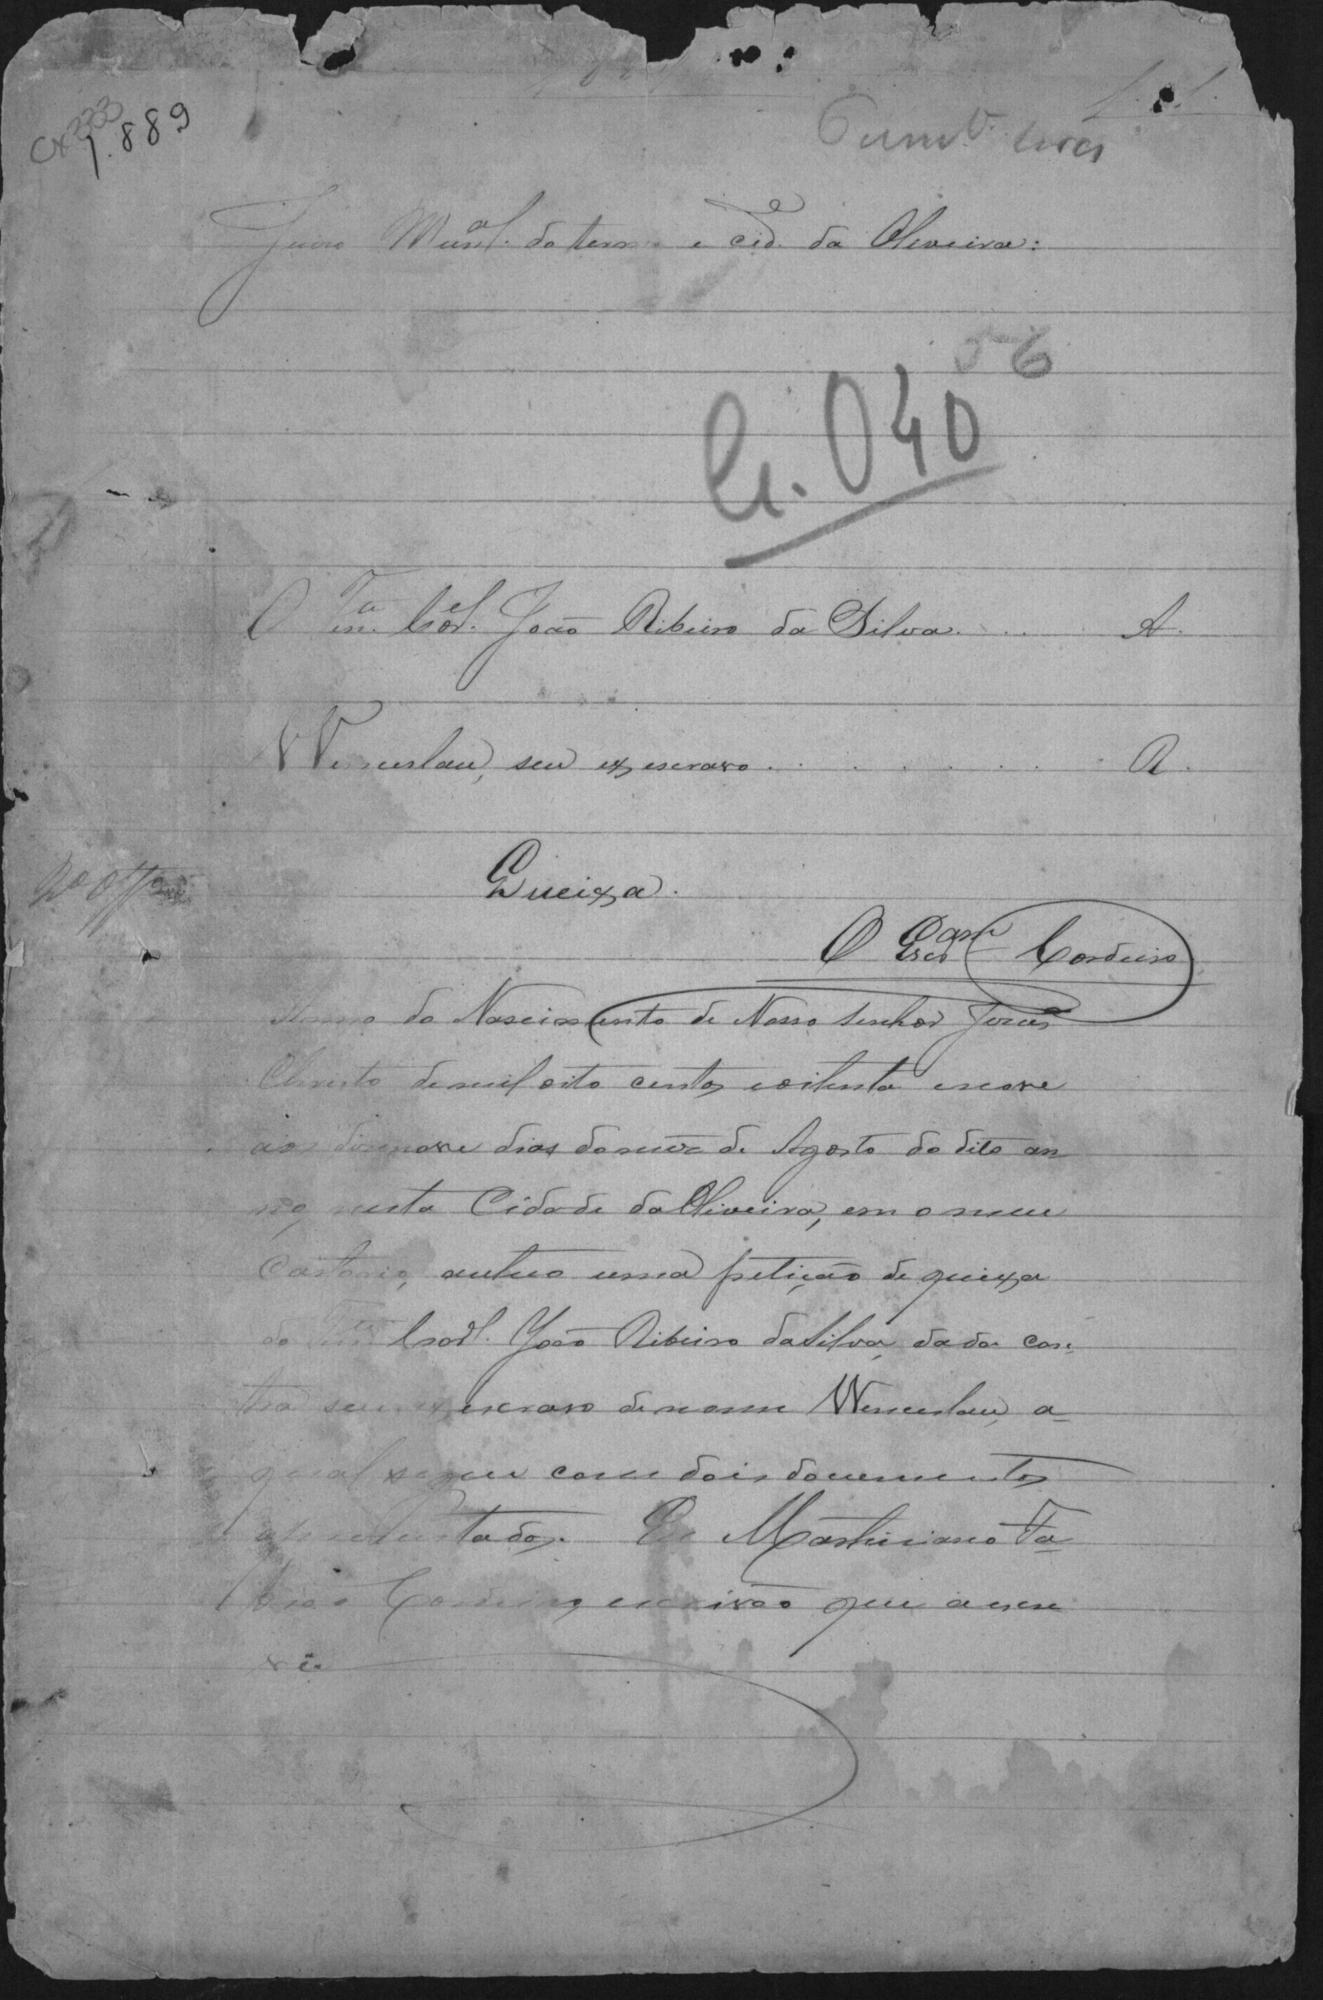 1.889
Cx 333
Juizo Mun.al do termo e cid.e da Oliveira:
56
Cr. 040
O Ten.e Cor.el João Ribeiro da Silva . . . A.
Wenceslau, seu ex escravo . . . . . . . . R.
2º Off.
Queixa.
O Escr.am Cordeiro
Anno do Nascimento de Nosso Senhor Jesus
Christo de mil oito centos e oitenta e nove
aos dizenove dias do mez de Agosto do dito an
no, nesta Cidade da Oliveira, em o meu
Cartorio, autuo uma petição de queixa
do Ten.e Cor.el João Ribeiro da Silva, dada con-
tra seu ex escravo de nome Wenceslau, a
qual segue com dois documentos
apresentados. Eu Martiniano Ta
Cordeiro, escrivão que a escre
vi.